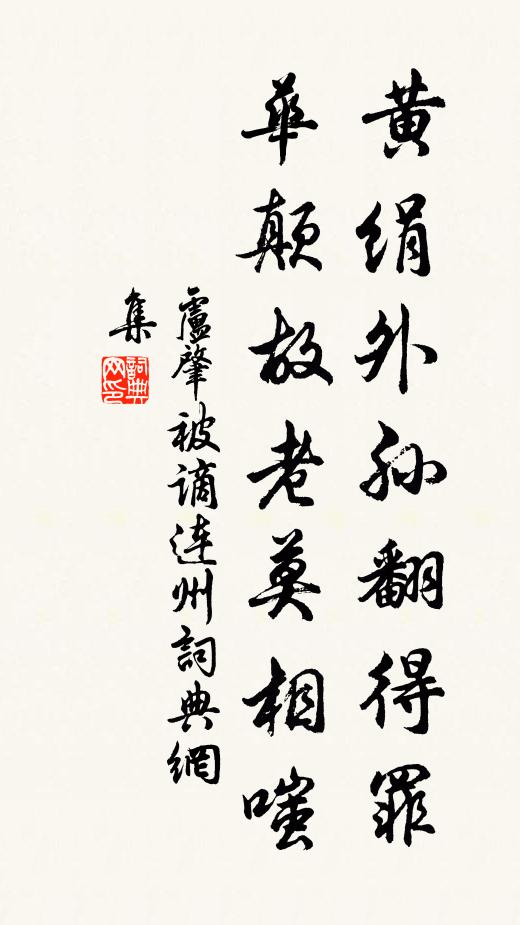 黄絹外孙翻得罪
華顛故老莫相嗤
盧肇被謫連州詞典網
集
詞典網印